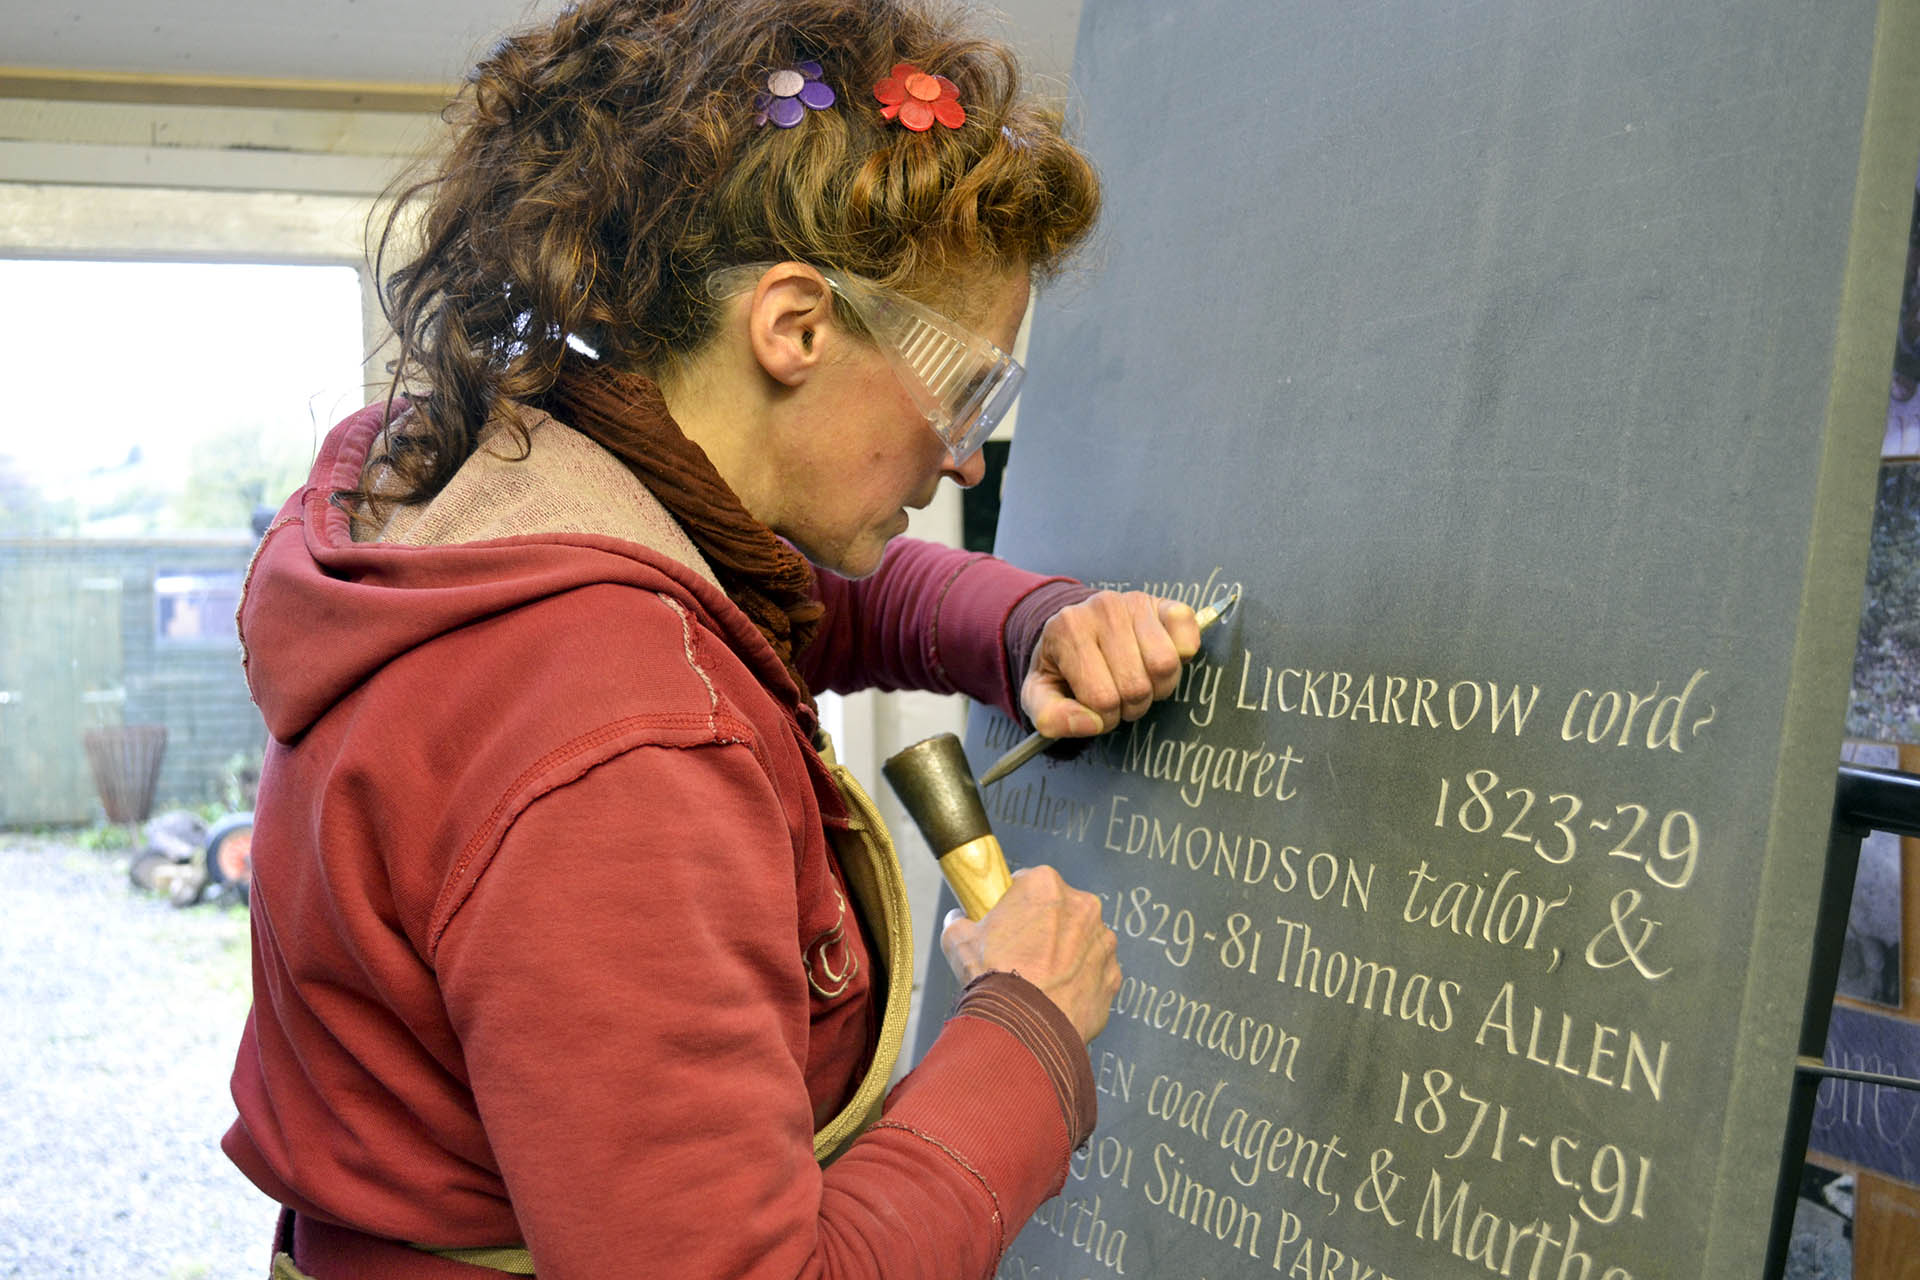 woolco
LICKBARROW cord-
Margaret 1823-29
Mathew EDMONDSON tailor, &
c.1829-81 Thomas ALLEN
onemason 1871-c.91
EN coal agent, & Martha
901 Simon PARK
artha